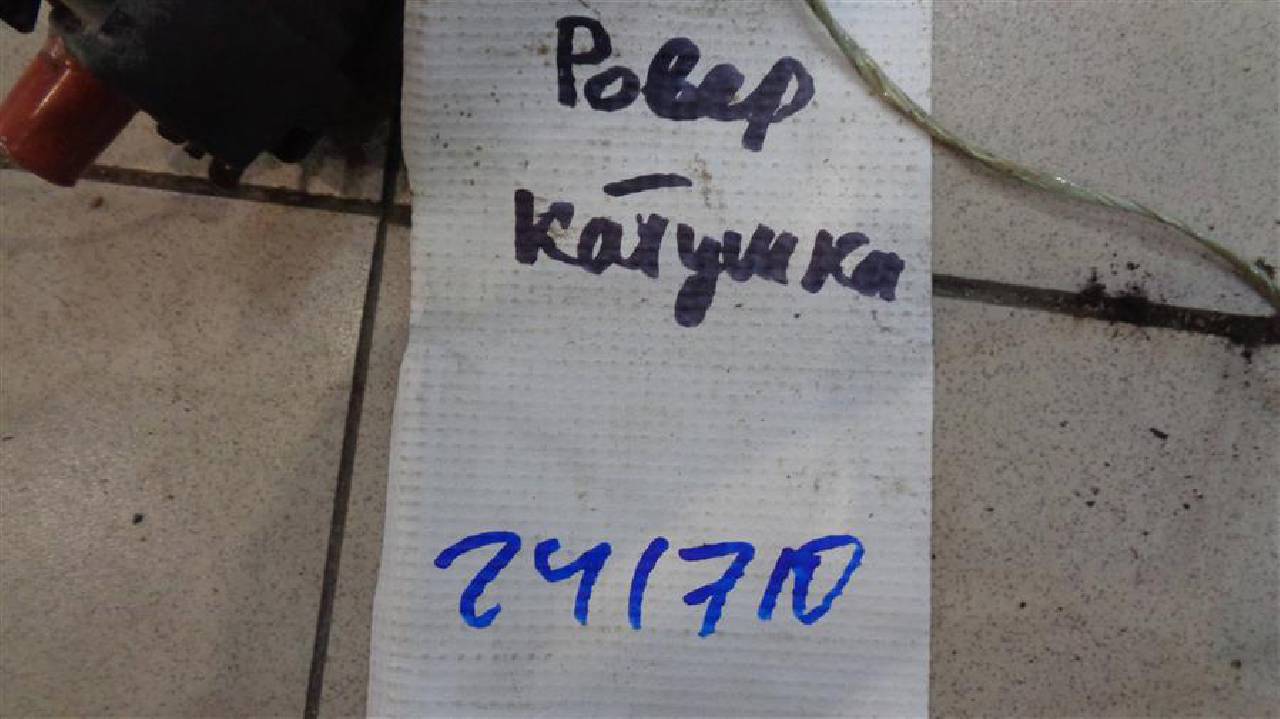 Ровер
–
катушка
241710